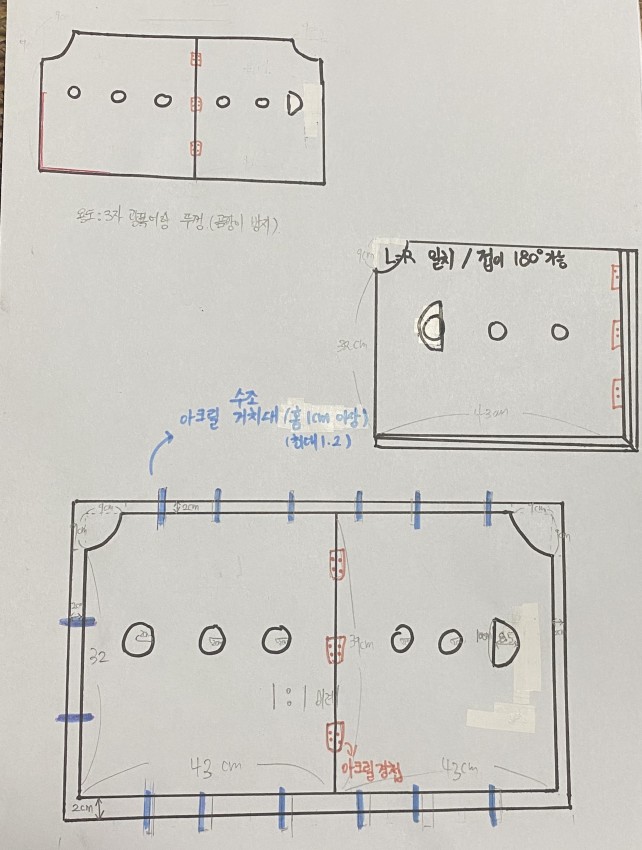 용도: 3자 광폭어항 뚜껑 (곰팡이 방지)
9cm
L=R 일치 / 접이 180°가능
38cm
43cm
수조
아크릴 거치대 (홈 1cm 이상)
(최대 1.2)
9cm
2cm
9cm
2cm
32
39cm
1:1
43 cm
43cm
아크릴경첩
2cm